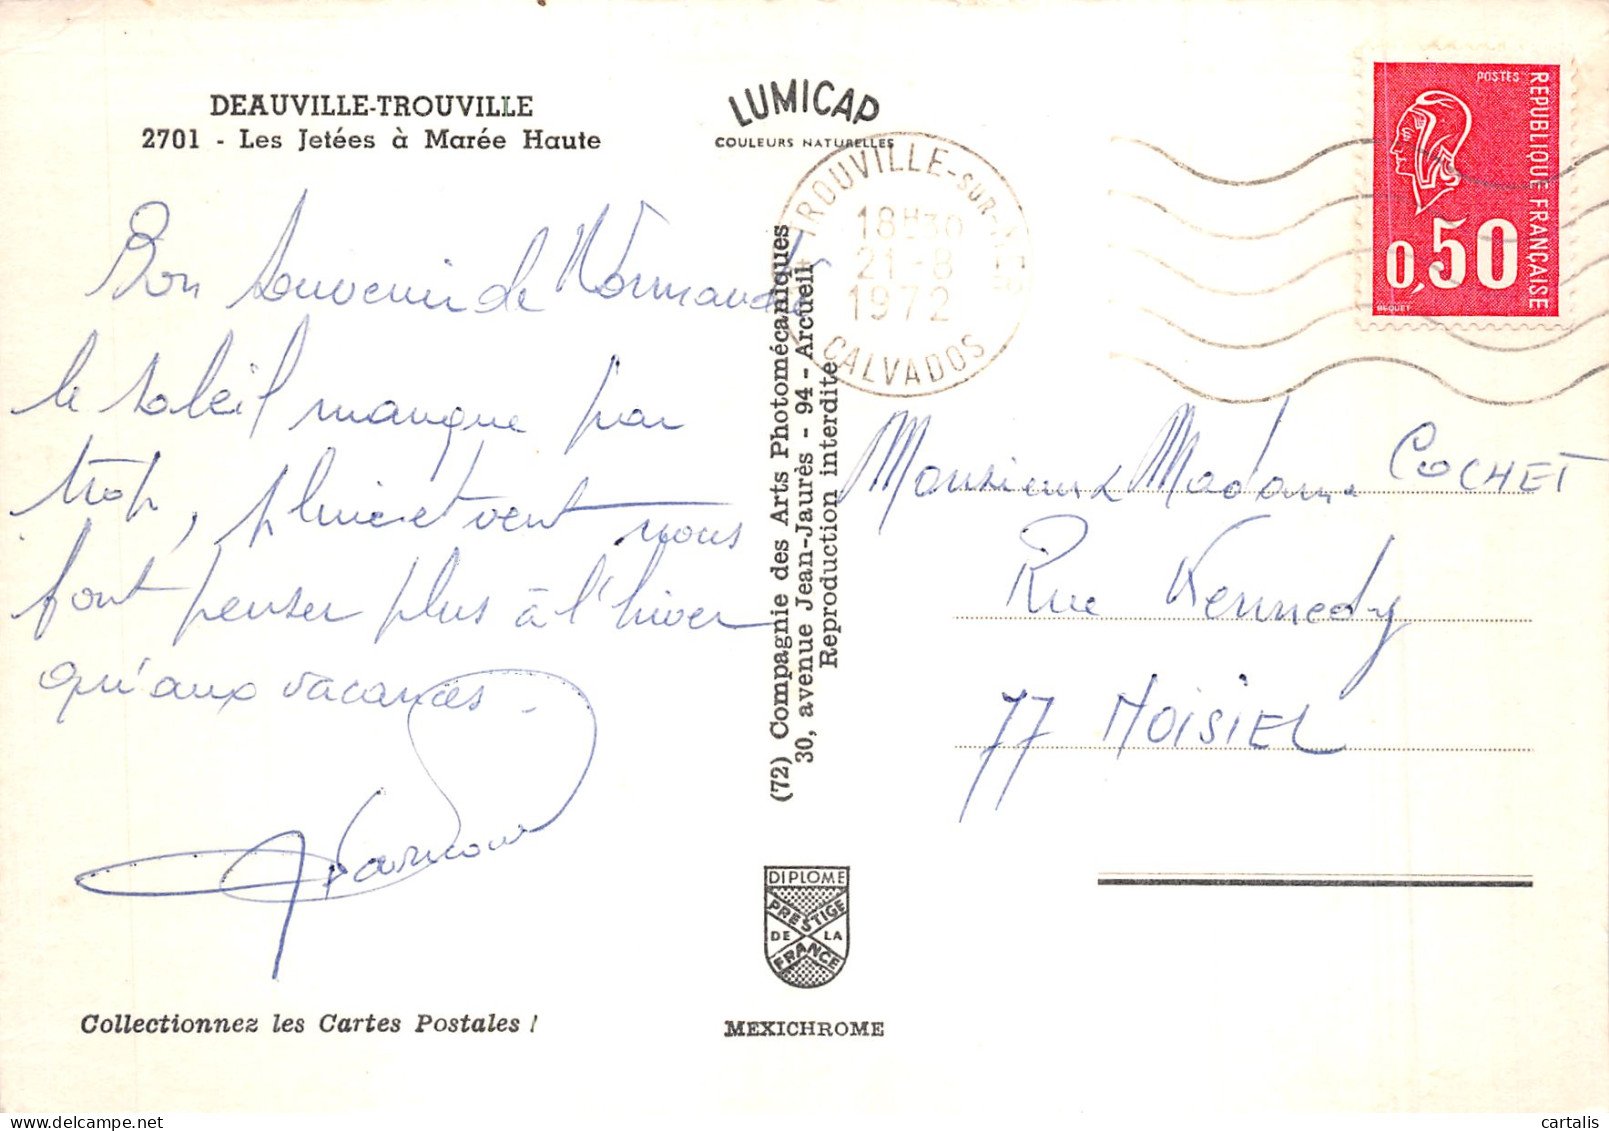 DEAUVILLE-TROUVILLE
2701 - Les Jetées à Marée Haute
LUMICAP
COULEURS NATURELLES
TROUVILLE-SUR-MER
18H30
21-8
1972
CALVADOS
POSTES
REPUBLIQUE FRANÇAISE
0,50
BEQUET
Bon Souvenir de Normandie
le soleil manque par
trop, pluie et vent nous
font penser plus à l'hiver
qu'aux vacances.
(72) Compagnie des Arts Photomécaniques
30, avenue Jean-Jaurès - 94 - Arcueil
Reproduction interdite
Monsieur & Madame COCHET
Rue Kennedy
77 NOISIEL
DIPLOME
PRESTIGE
DE LA
FRANCE
Collectionnez les Cartes Postales !
MEXICHROME
delcampe.net
cartalis